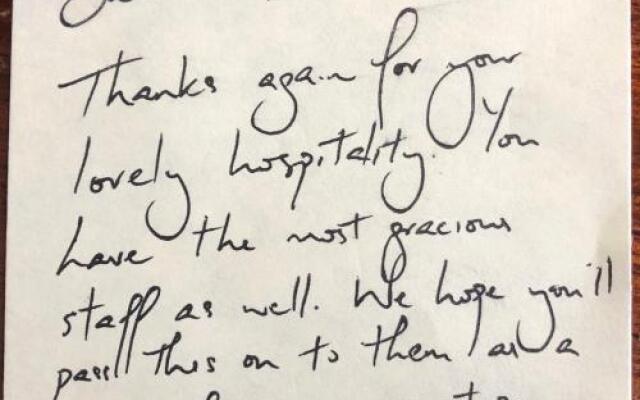 Thanks again for your
lovely hospitality. You
have the most gracious
staff as well. We hope you'll
pass this on to them as a